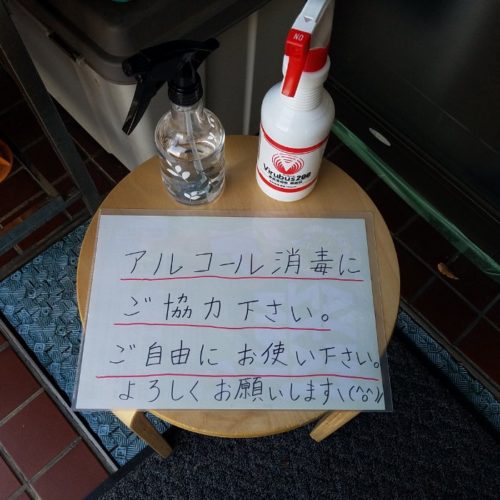 ON
Virubus200
アルコール消毒に
ご協力下さい。
ご自由にお使い下さい。
よろしくお願いします\(^o^)/